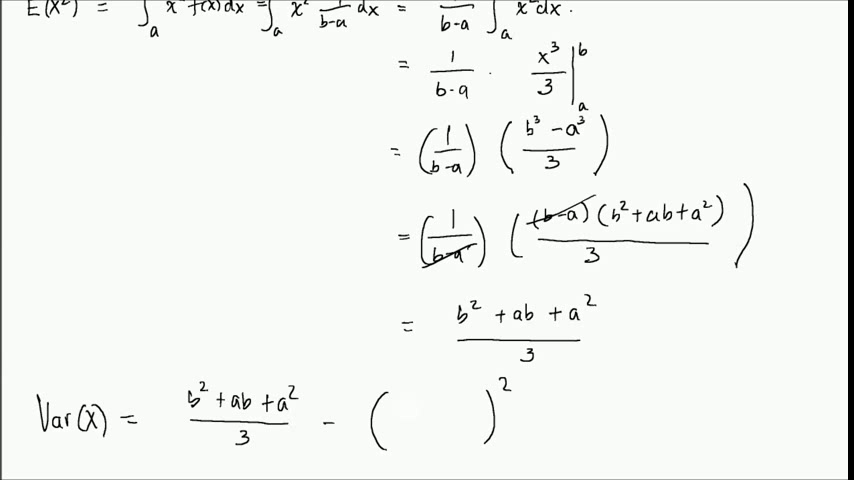 E(X²) = ∫ₐ x² f(x) dx = ∫ₐ x² 1/(b-a) dx = 1/(b-a) ∫ₐ x² dx.
= 1/(b-a) · x³/3 |ₐᵇ
= (1/(b-a)) ((b³ - a³)/3)
= (1/(b-a)) ((b-a)(b² + ab + a²)/3)
= (b² + ab + a²)/3
Var(X) = (b² + ab + a²)/3 - ( )²